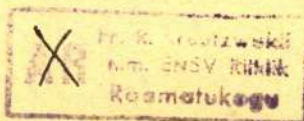 Fr. R. Kreutzwaldi
nim. ENSV Riiklik
Raamatukogu